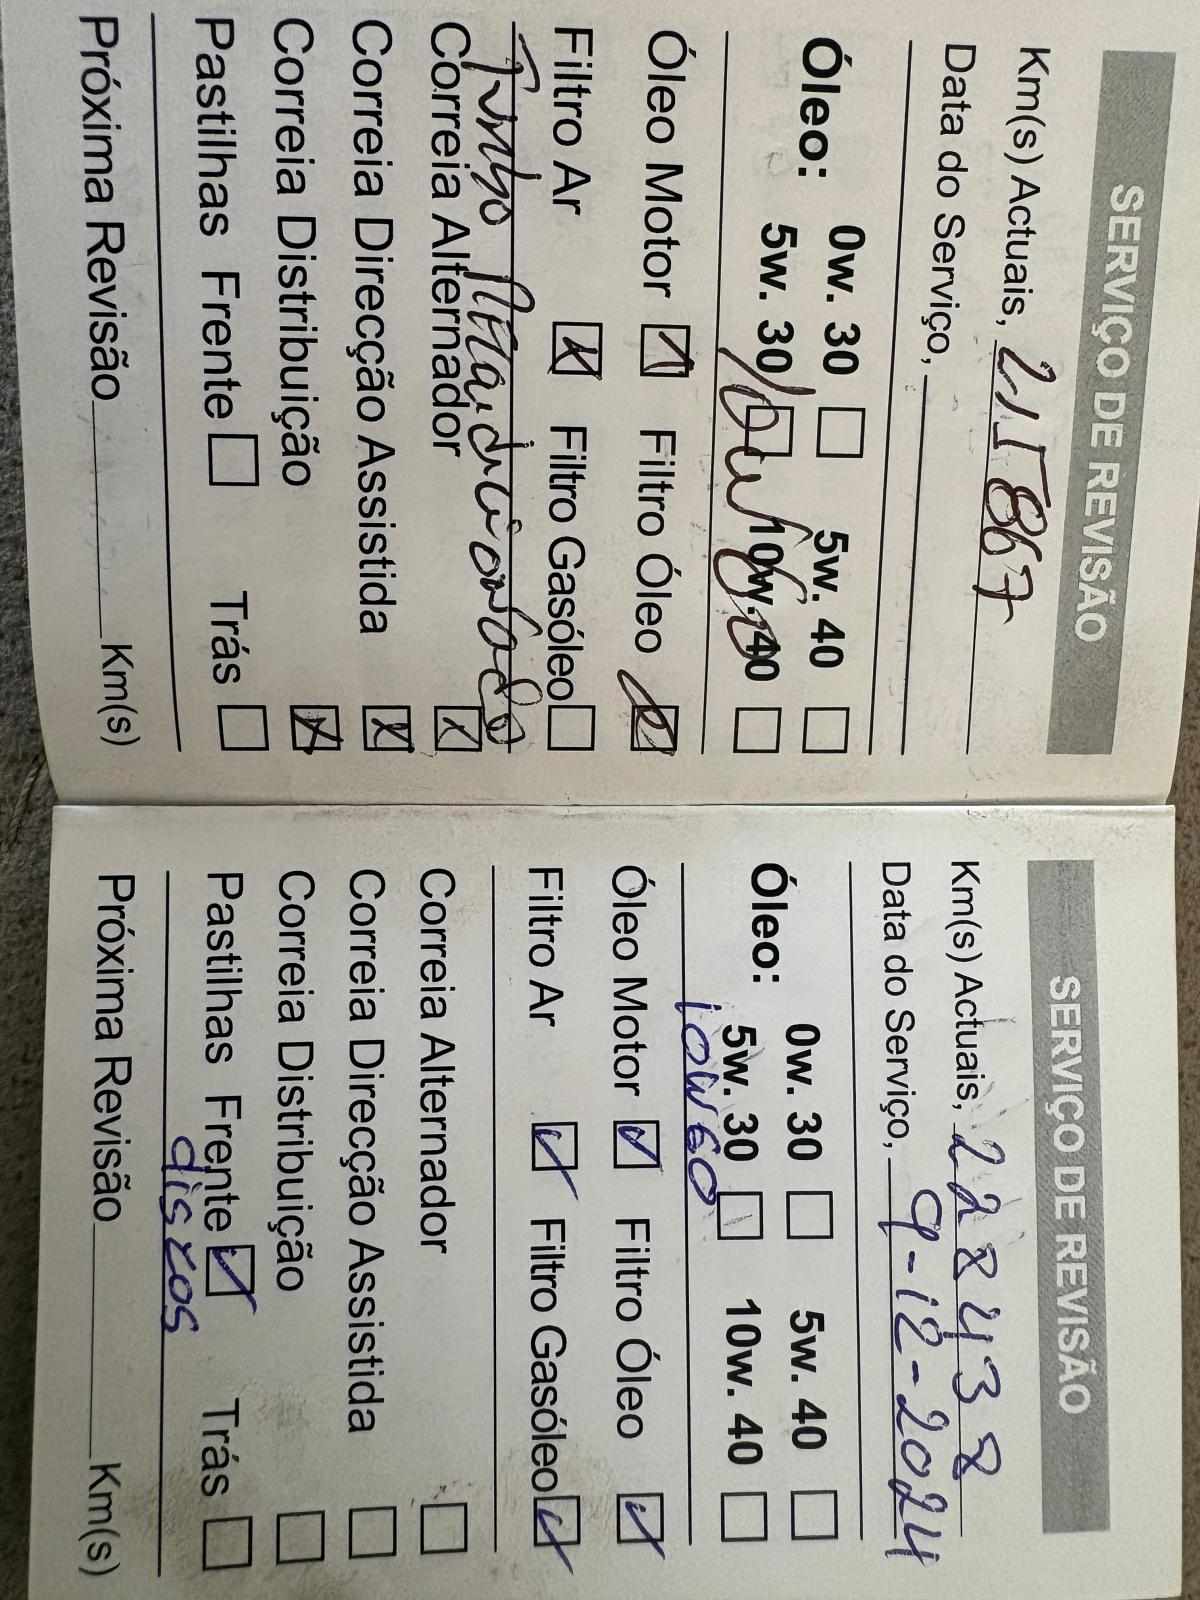 SERVIÇO DE REVISÃO
Km(s) Actuais, 215867
Data do Serviço,
Óleo: 0w. 30 5w. 40
5w. 30 10w. 40
10w60
Óleo Motor Filtro Óleo
Filtro Ar Filtro Gasóleo
Turbo
Correia Alternador
Correia Direcção Assistida
Correia Distribuição
Pastilhas Frente Trás
Próxima Revisão Km(s)
SERVIÇO DE REVISÃO
Km(s) Actuais, 228438
Data do Serviço, 9-12-2024
Óleo: 0w. 30 5w. 40
5w. 30 10w. 40
10W60
Óleo Motor Filtro Óleo
Filtro Ar Filtro Gasóleo
Correia Alternador
Correia Direcção Assistida
Correia Distribuição
Pastilhas Frente Trás
discos
Próxima Revisão Km(s)